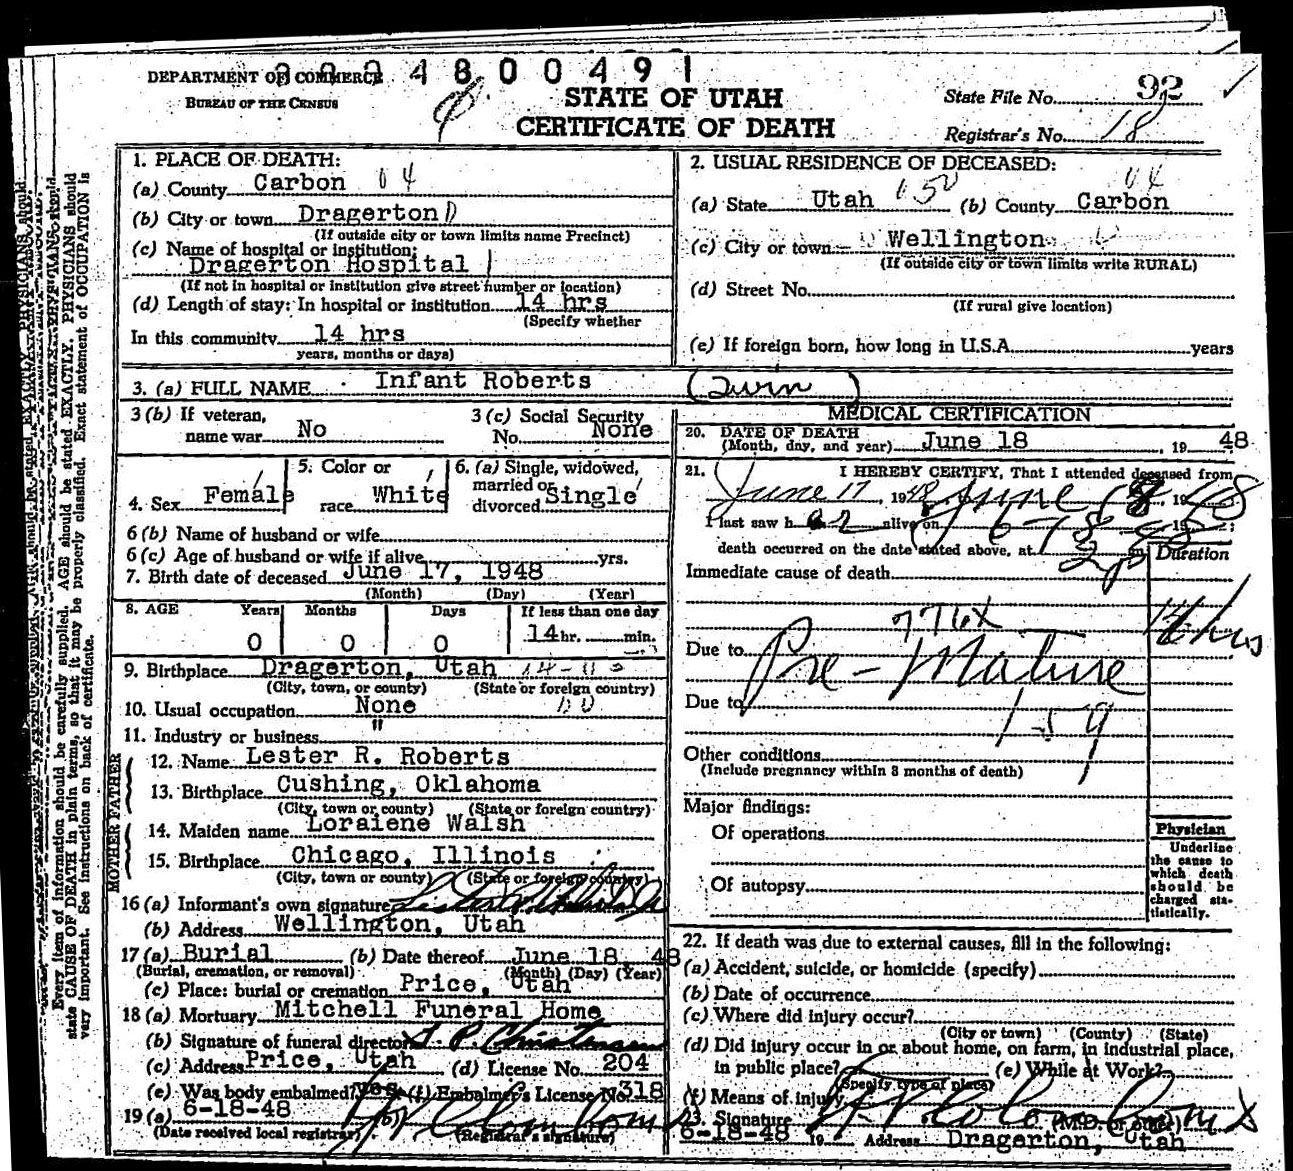 004800491
DEPARTMENT OF COMMERCE
BUREAU OF THE CENSUS
STATE OF UTAH
CERTIFICATE OF DEATH
State File No. 92
Registrar's No. 18
1. PLACE OF DEATH:
(a) County Carbon 04
(b) City or town Dragerton
(If outside city or town limits name Precinct)
(c) Name of hospital or institution:
Dragerton Hospital
(If not in hospital or institution give street number or location)
(d) Length of stay: In hospital or institution 14 hrs
(Specify whether
In this community 14 hrs
years, months or days)
2. USUAL RESIDENCE OF DECEASED:
(a) State Utah (b) County Carbon 04
(c) City or town Wellington
(If outside city or town limits write RURAL)
(d) Street No.
(If rural give location)
(e) If foreign born, how long in U.S.A. years
3. (a) FULL NAME Infant Roberts (Twin)
3 (b) If veteran, name war No
3 (c) Social Security No. None
4. Sex Female
5. Color or race White
6. (a) Single, widowed, married or divorced Single
6 (b) Name of husband or wife
6 (c) Age of husband or wife if alive yrs.
7. Birth date of deceased June 17, 1948
(Month) (Day) (Year)
8. AGE Years Months Days If less than one day
0 0 0 14 hr. min.
9. Birthplace Dragerton, Utah
(City, town, or county) (State or foreign country)
10. Usual occupation None
11. Industry or business "
FATHER
12. Name Lester R. Roberts
13. Birthplace Cushing, Oklahoma
(City, town or county) (State or foreign country)
MOTHER
14. Maiden name Loraiene Walsh
15. Birthplace Chicago, Illinois
(City, town or county) (State or foreign country)
16 (a) Informant's own signature
(b) Address Wellington, Utah
17 (a) Burial (b) Date thereof June 18, 48
(Burial, cremation, or removal) (Month) (Day) (Year)
(c) Place: burial or cremation Price, Utah
18 (a) Mortuary Mitchell Funeral Home
(b) Signature of funeral director J. P. Christensen
(c) Address Price, Utah (d) License No. 204
(e) Was body embalmed? Yes (f) Embalmer's License No. 318
19 (a) 6-18-48 (b)
(Date received local registrar) (Registrar's signature)
MEDICAL CERTIFICATION
20. DATE OF DEATH
(Month, day, and year) June 18, 1948
21. I HEREBY CERTIFY, That I attended deceased from
June 17, 1948 June 18, 1948
I last saw her alive on 6-18-48 19 ;
death occurred on the date stated above, at m
Duration
Immediate cause of death
776X
Due to Pre-Mature 14 hrs
Due to 159
Other conditions
(Include pregnancy within 3 months of death)
Major findings:
Of operations
Of autopsy
Physician
Underline
the cause to
which death
should be
charged sta-
tistically.
22. If death was due to external causes, fill in the following:
(a) Accident, suicide, or homicide (specify)
(b) Date of occurrence
(c) Where did injury occur?
(City or town) (County) (State)
(d) Did injury occur in or about home, on farm, in industrial place,
in public place? (e) While at Work?
(Specify type of place)
(f) Means of injury
23. Signature (M.D. or other)
6-18-48 19 Address Dragerton, Utah
Every item of information should be carefully supplied. AGE should be stated EXACTLY. PHYSICIANS should
state CAUSE OF DEATH in plain terms, so that it may be properly classified. Exact statement of OCCUPATION is
very important. See instructions on back of certificate.